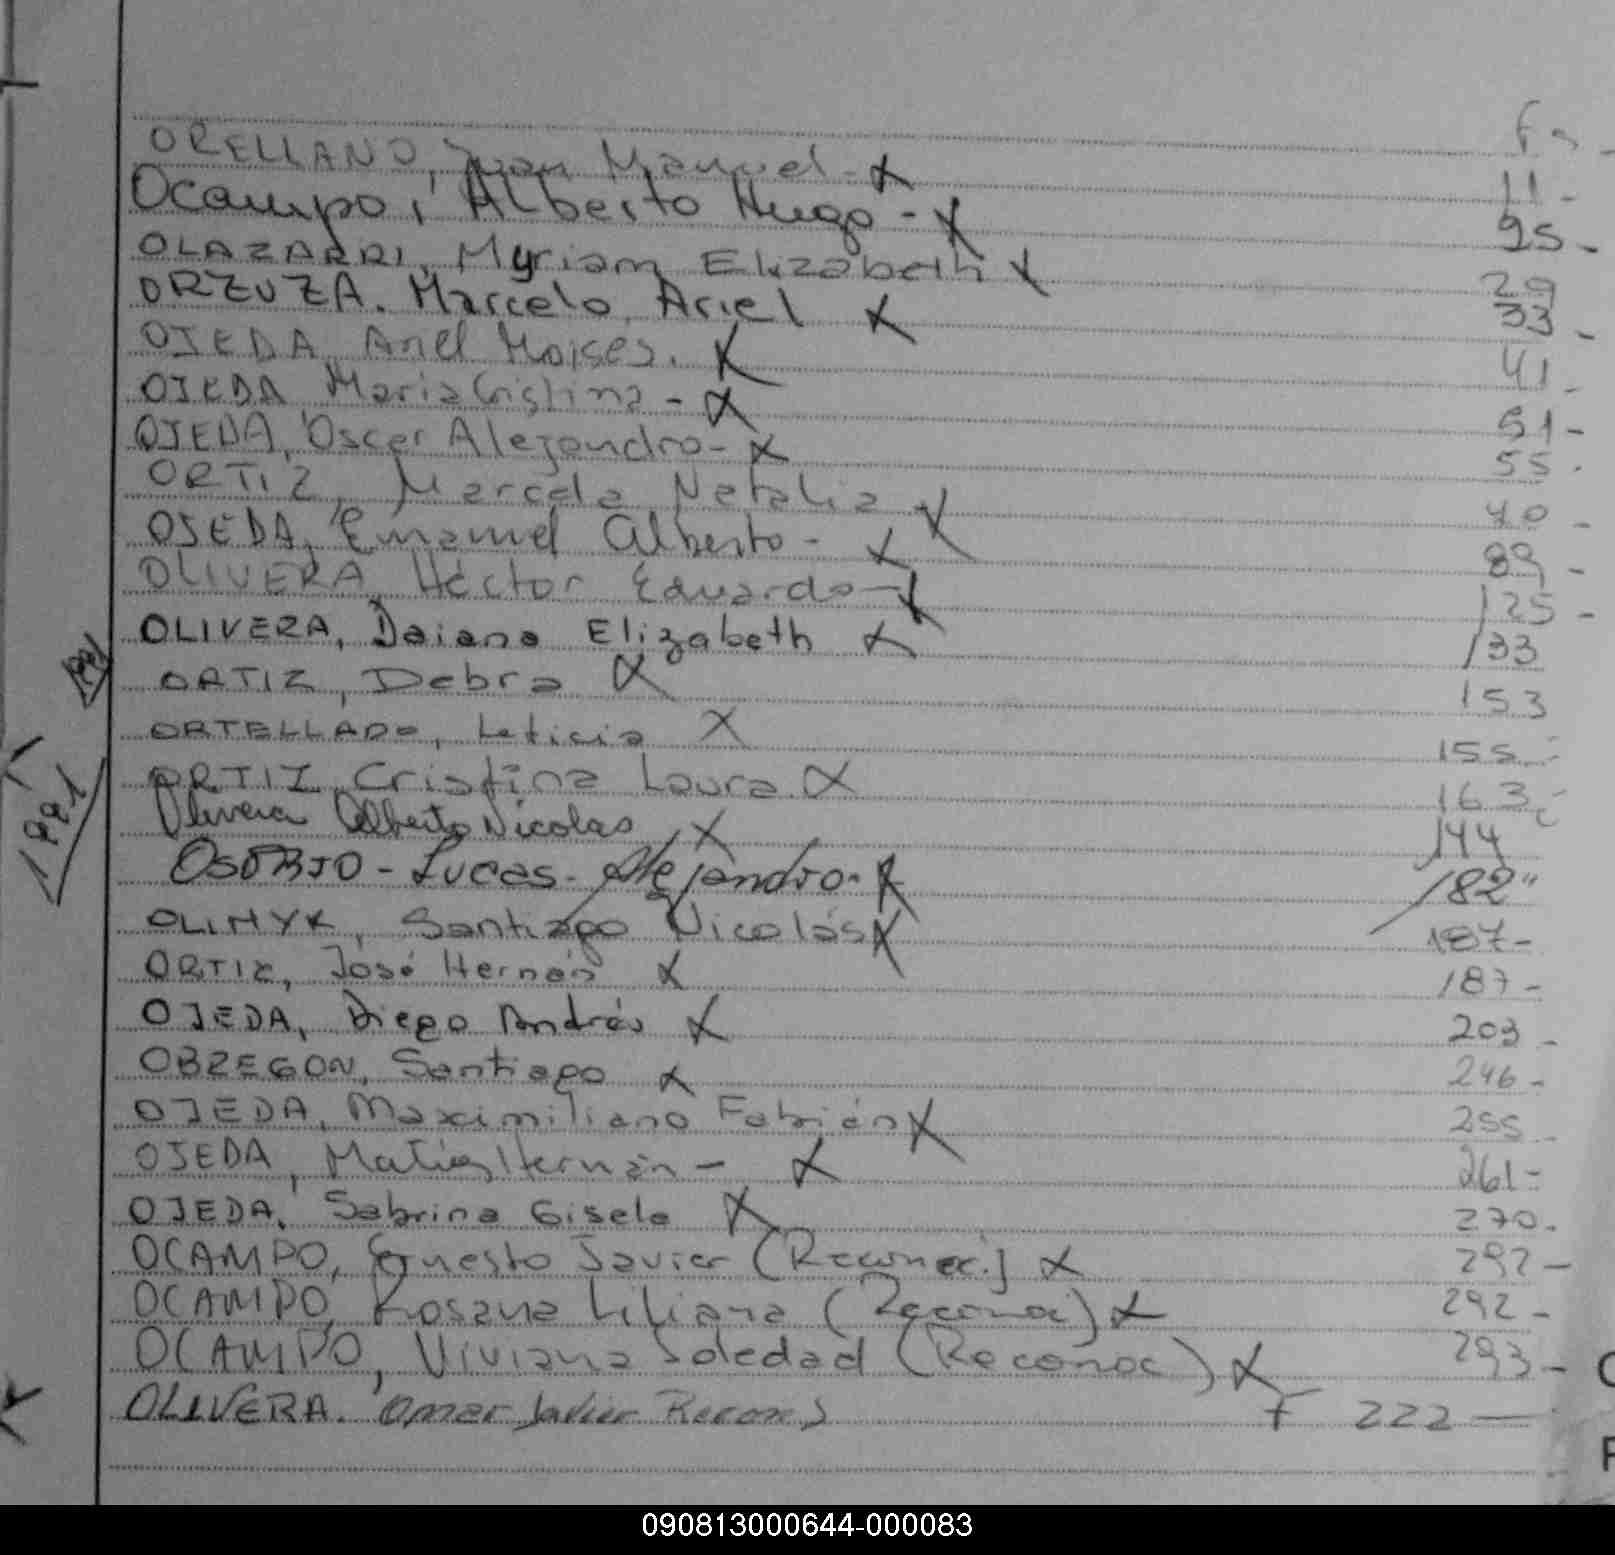 Fs
ORELLANO, Juan Manuel - X 11 -
Ocampo, Alberto Hugo - X 25 -
OLAZARRI, Myriam Elizabeth X 29
ORZUZA. Marcelo Ariel X 33 -
OJEDA, Ariel Moises. X 41 -
OJEDA Maria Cristina - X 51 -
OJEDA, Oscar Alejandro - X 55 -
ORTIZ, Marcela Natalia X 40 -
OJEDA, Emanuel Alberto - X 89 -
OLIVERA, Héctor Eduardo - X 125 -
OLIVERA, Daiana Elizabeth X 133
ORTIZ, Debra X 153
ORTELLADO, Leticia X 155
ORTIZ, Cristina Laura X 163
Olivera Alberto Nicolas X 144
OSORIO - Lucas - Alejandro - X 182"
OLINYK, Santiago Nicolás X 187 -
ORTIZ, José Hernán X 187 -
OJEDA, Diego Andrés X 203 -
OBREGON, Santiago X 246 -
OJEDA, Maximiliano Fabián X 255 -
OJEDA, Matías Hernán - X 261 -
OJEDA, Sabrina Gisele X 270 -
OCAMPO, Ernesto Javier (Reconoc.) X 292 -
OCAMPO, Rosana Liliana (Reconoc) X 292 -
OCAMPO, Viviana Soledad (Reconoc) X 293 -
OLIVERA. Omar Javier F 222 —
1991
090813000644-000083